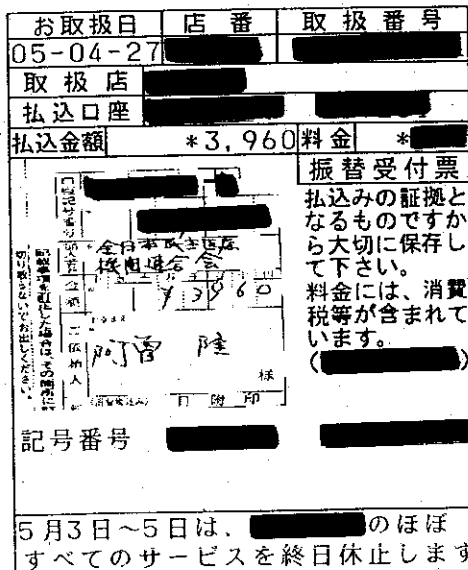 お取扱日 店番 取扱番号
05-04-27
取扱店
払込口座
払込金額 *3,960 料金 *
振替受付票
払込みの証拠と
なるものですか
ら大切に保存し
て下さい。
料金には、消費
税等が含まれて
います。
( )
口座記号番号
加入者名
全日本民主医療
機関連合会
金額 ¥3960
ご依頼人
阿曽 陸
様
日附印
記載事項を訂正した場合は、その箇所に訂
切り取らないでお出しください。
記号番号
5月3日~5日は、 のほぼ
すべてのサービスを終日休止します